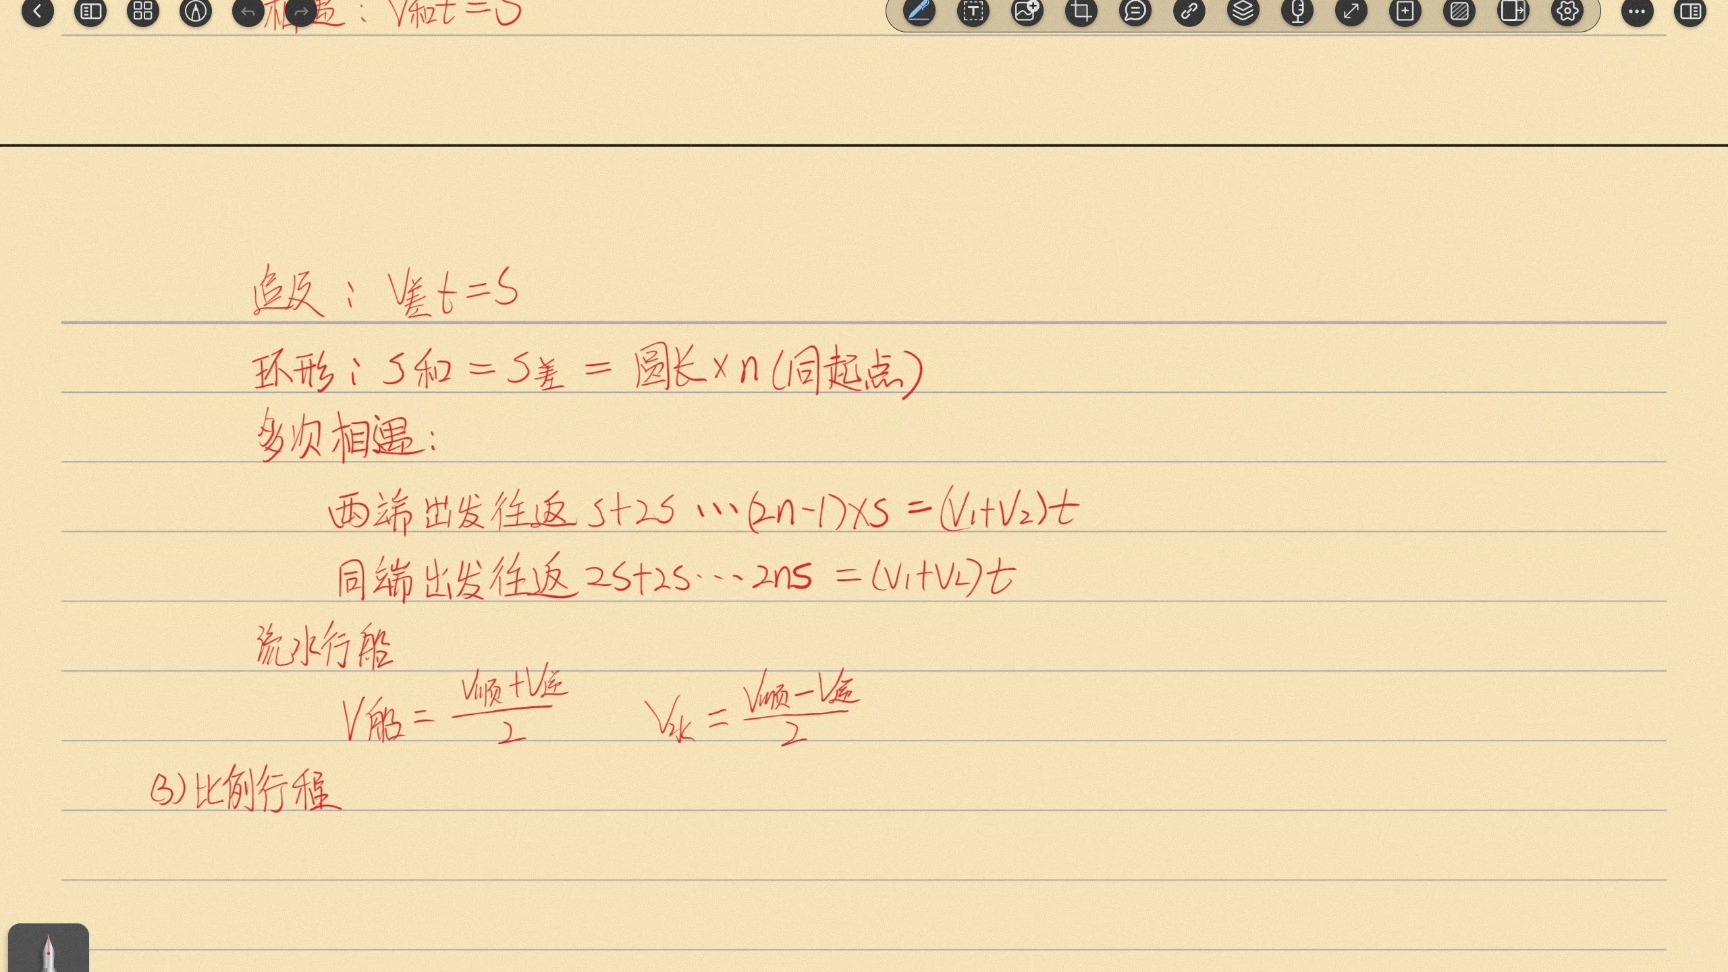 相遇：V和t=S
追及：V差t=S
环形：S和=S差=圆长×n(同起点)
多次相遇：
两端出发往返 S+2S…(2n-1)×S=(V1+V2)t
同端出发往返 2S+2S…2nS=(V1+V2)t
流水行船
V船=(V顺+V逆)/2 V水=(V顺-V逆)/2
(3)比例行程